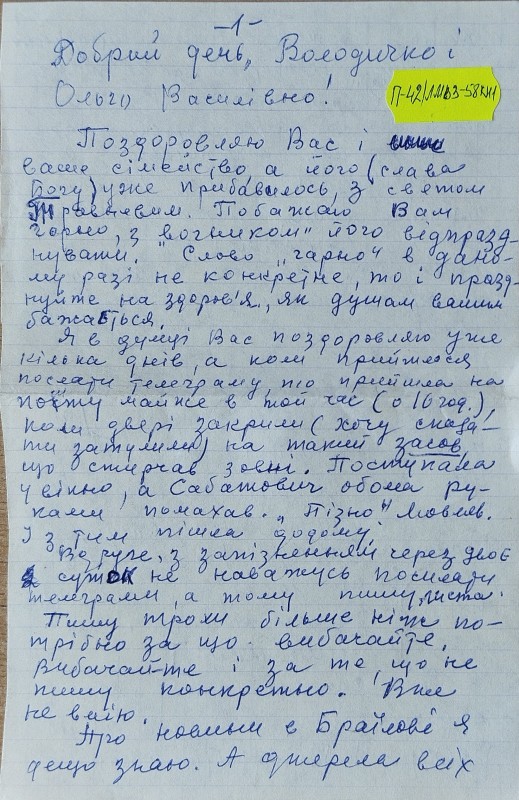 -1-
Добрий день, Володичко і
Ольго Василівно!
П-42/ЛМВЗ-58КН
Поздоровляю Вас і
ваше сімейство, а його (слава
Богу) уже прибавилось, з святом
Травневим. Побажаю Вам
гарно, з „вогником" його відпразд-
нувати. Слово „гарно" в дано-
му разі не конкретне, то і празд-
нуйте на здоров'я, як душам вашим
бажається.
Я в думці Вас поздоровляю уже
кілька днів, а коли прийшлося
послати телеграму, то прийшла на
пошту майже в той час (о 16 год.),
коли двері закрили (хочу сказа-
ти затулили) на такий засов,
що стирчав зовні. Постукала
у вікно, а Сабатович обома ру-
ками помахав. „Пізно" мовляв.
І з тим пішла додому.
Во друге, з запізненням через двоє
суток не наважусь посилати
телеграми, а тому пишу листа.
Пишу трохи більше ніж по-
трібно за що вибачайте.
Вибачайте і за те, що не
пишу конкретно. Вже
не вмію.
Про новини в Браїлові я
дещо знаю. А джерела всіх